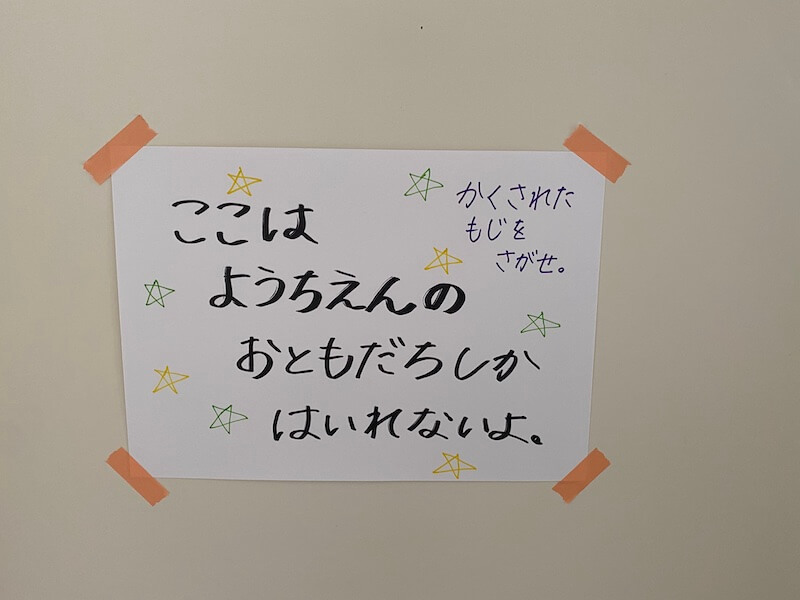 ここは
ようちえんの
おともだちしか
はいれないよ。
かくされた
もじを
さがせ。